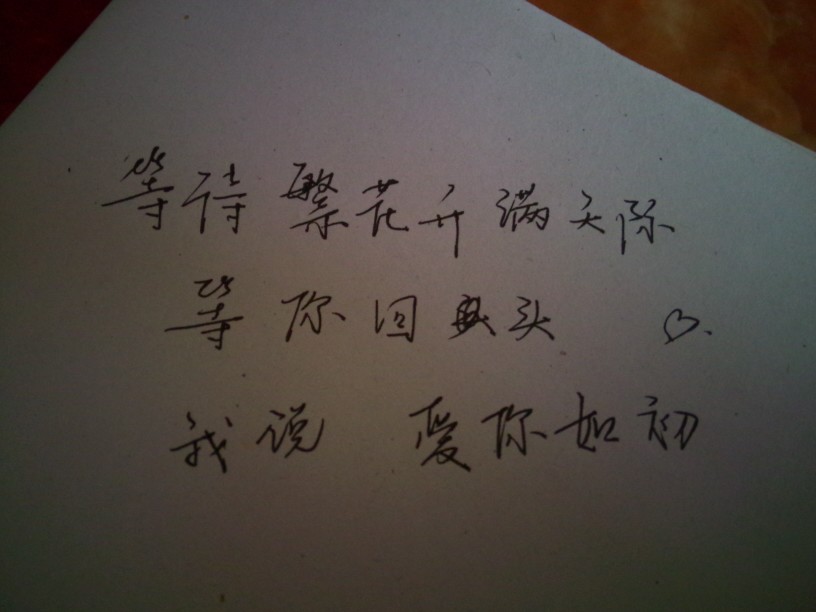 等待繁花开满天际
等你回头 ♡.
我说 爱你如初